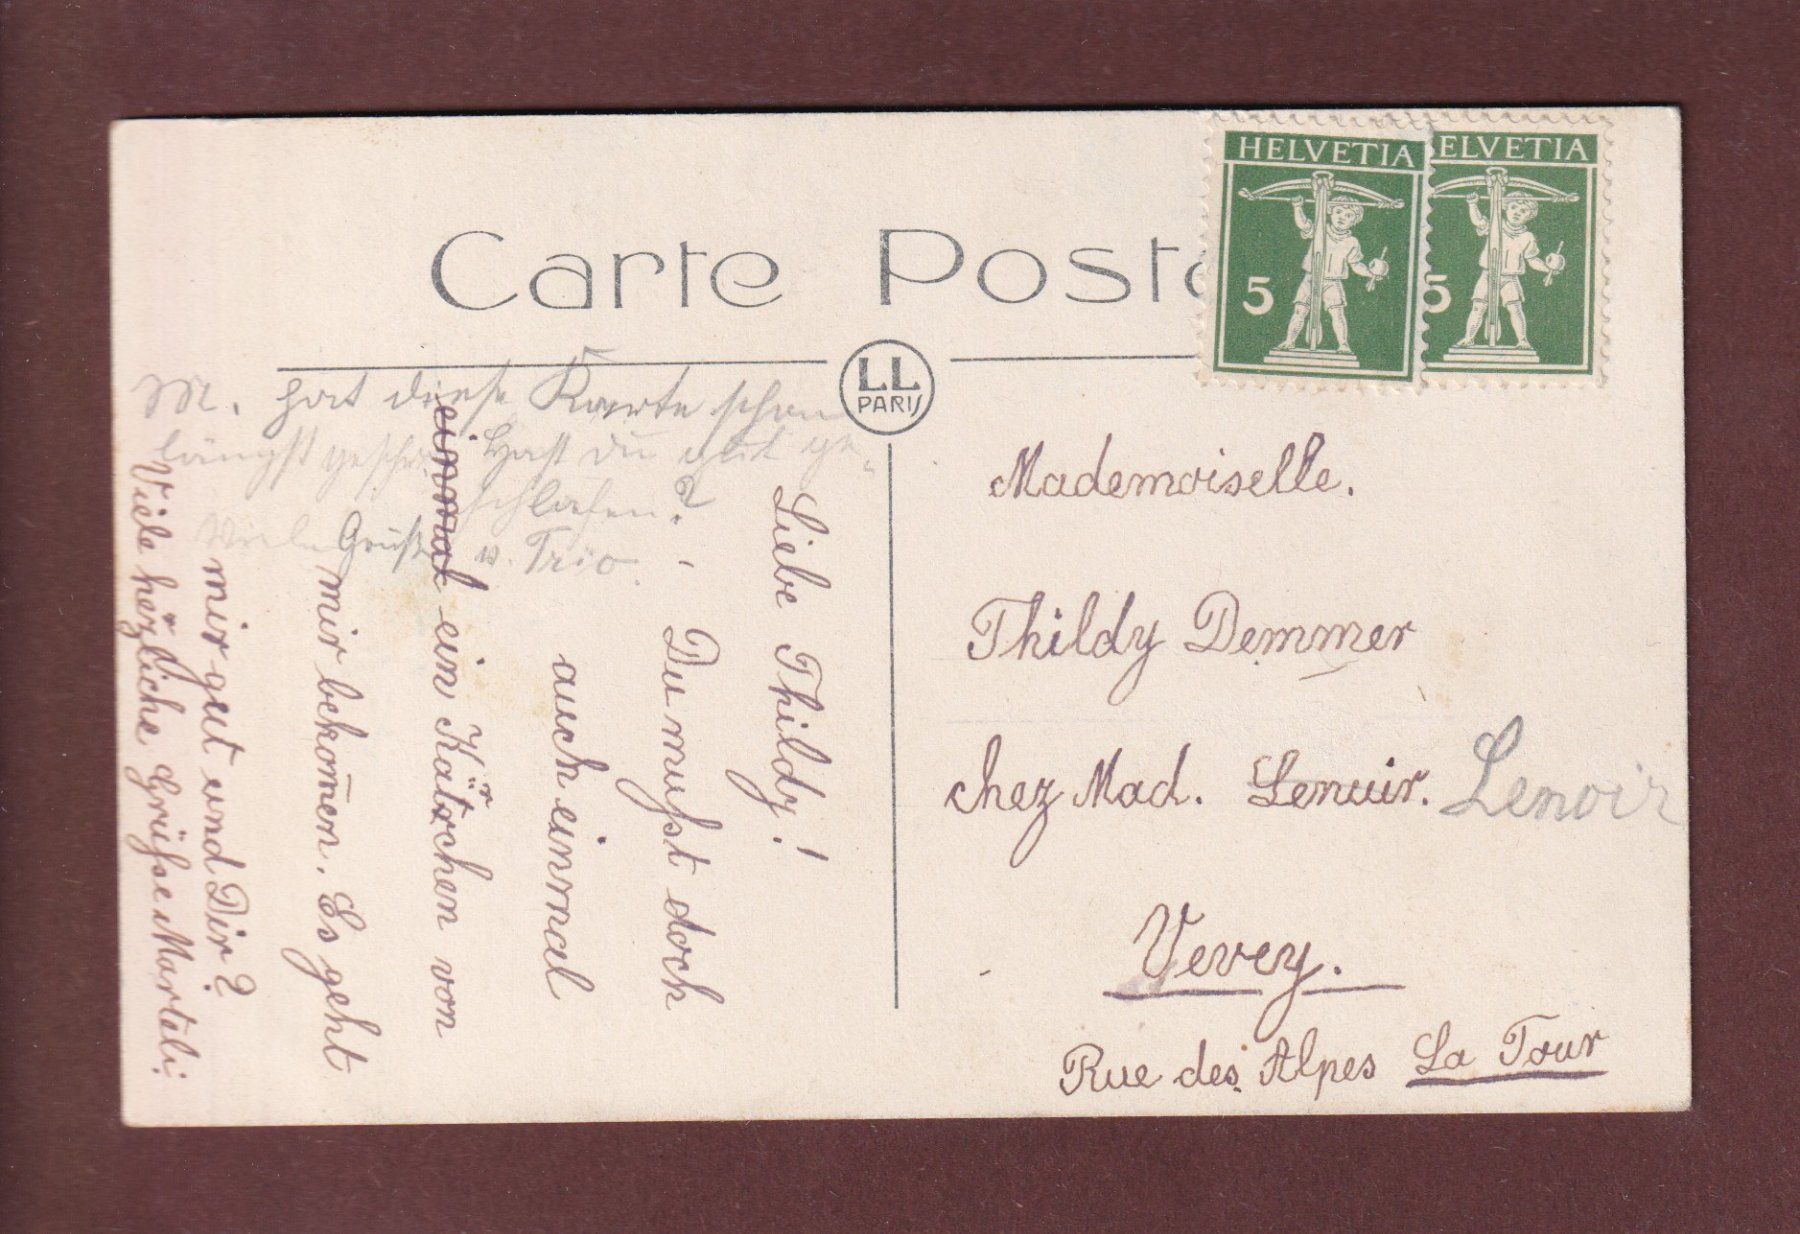 Carte Posta
HELVETIA
5
ELVETIA
5
LL
PARIS
M. hat diese Karte schon
längst geschr. Hast Du gut ge-
schlafen?
Viele Grüße v. Trio.
Liebe Thildy!
Du mußt doch
auch einmal
einmal ein Kärtchen von
mir bekom̅en. Es geht
mir gut und Dir?
Viele herzliche Grüsse Marteli.
Mademoiselle.
Thildy Demmer
chez Mad. Lenuir. Lenoir
Vevey.
Rue des Alpes La Tour